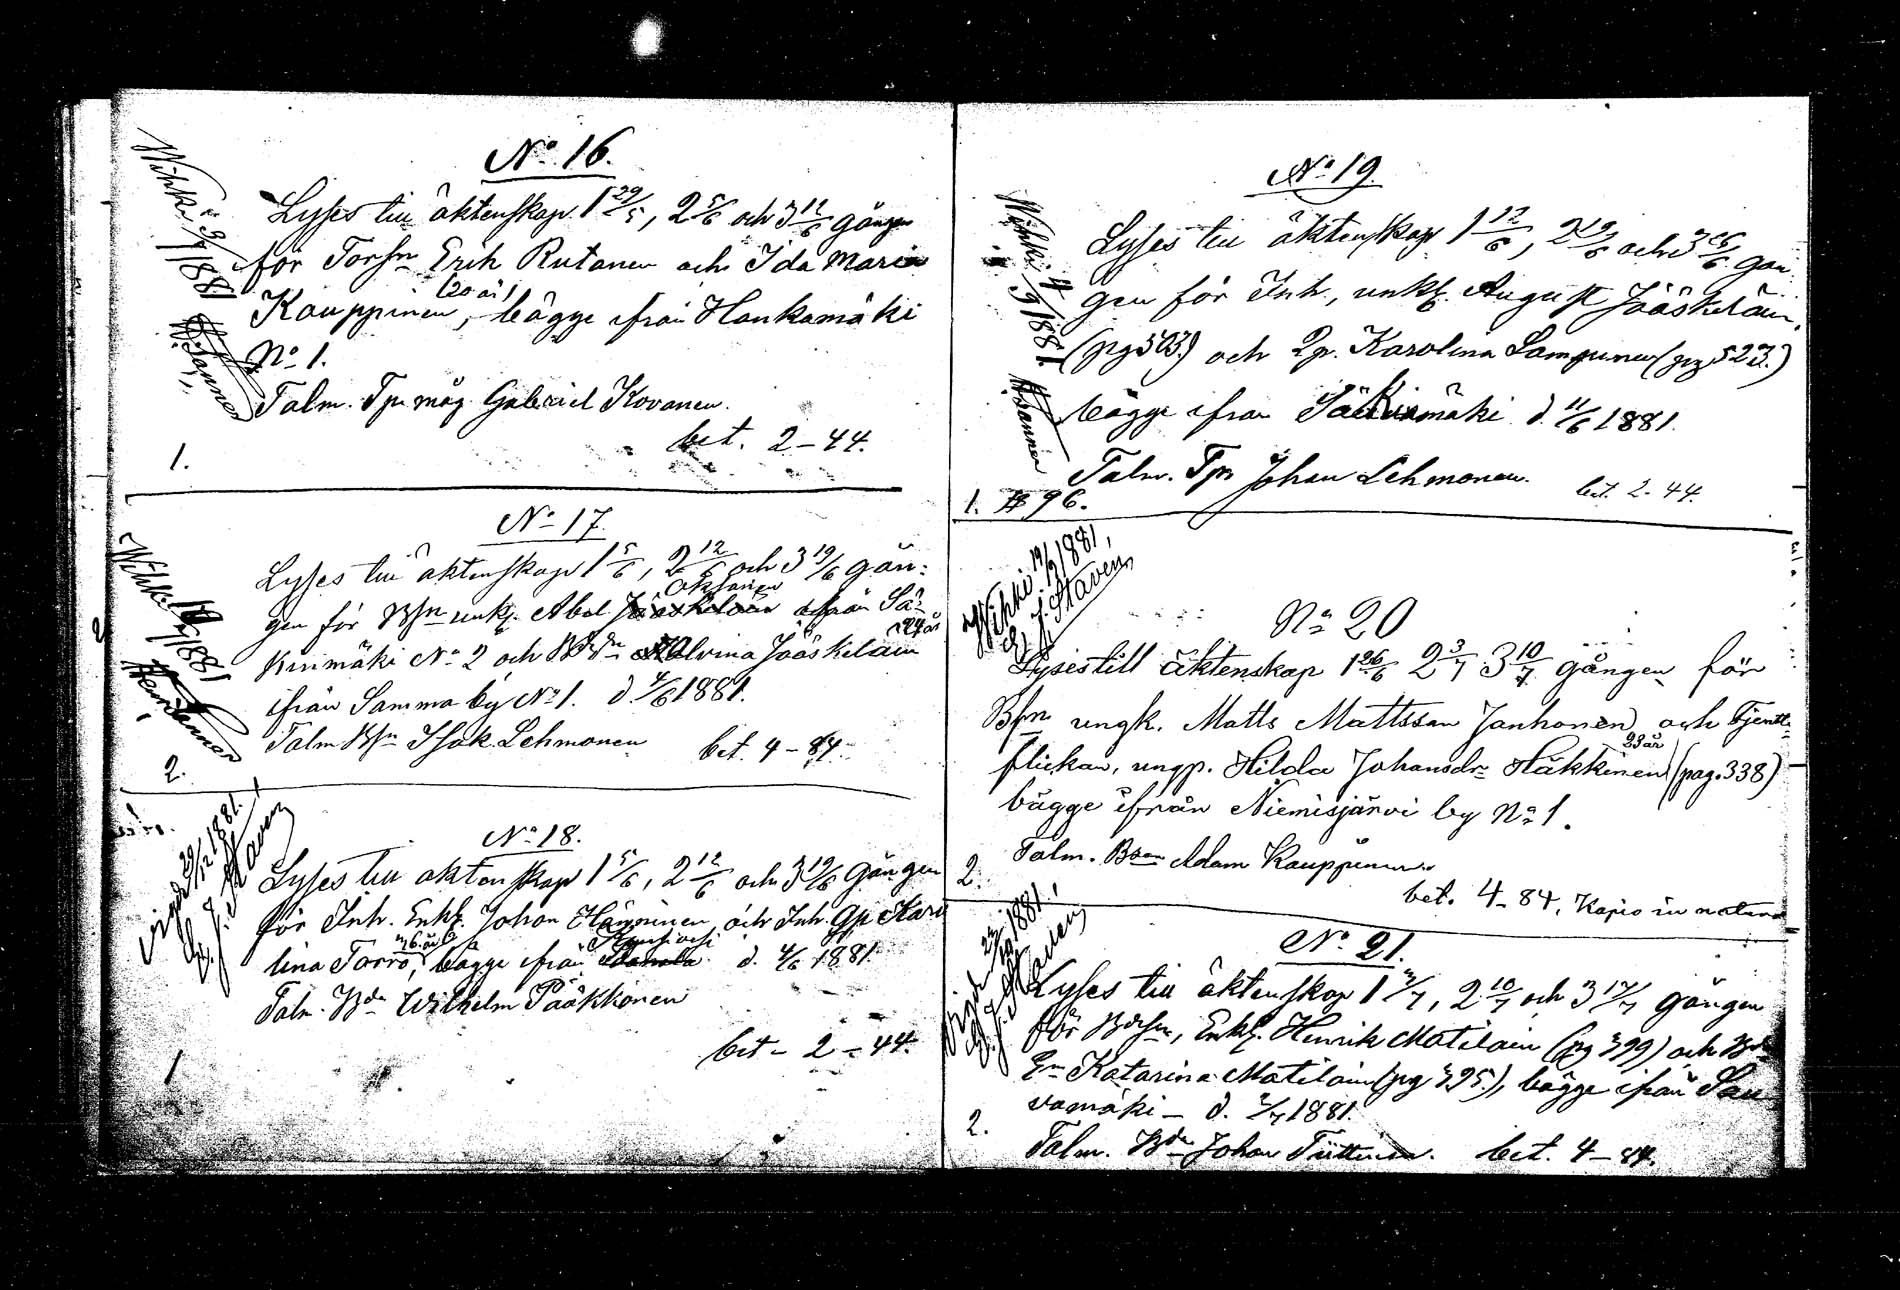 No 16.
Lyses till äktenskap 1 29/5, 2 5/6 och 3 12/6 gången
för Torpsn Erik Rutanen och Ida Maria
(20 år)
Kauppinen, bägge ifrån Hankamäki
No 1.
Talm. Tpr måg Gabriel Kovanen.
bet. 2-44.
1.
Wihki 3/7 1881
No 17.
Lyses till äktenskap 1 5/6, 2 12/6 och 3 19/6 gån-
Oksanen
gen för Bsn unk. Abel Jääskeläin ifrån Sä-
24 år
kinmäki No 2 och Bdr Alvina Jääskeläin
ifrån Samma by No 1. d. 4/6 1881.
Talm Bsn Isak Lehmonen bet. 4-84.
2.
Wihki 1881
No 18.
Lyses till äktenskap 1 5/6, 2 12/6 och 3 19/6 gången
för Inh. Enkl. Johan Hänninen och Inh. Gp Karo
36 år
lina Torro, bägge ifrån d. 4/6 1881.
Talm. Bdn Wilhelm Pääkkönen
bet - 2 - 44.
1
Vigde 29/12 1881.
J. Staven
No 19.
Lyses till äktenskap 1 12/6, 2 19/6 och 3 26/6 gån-
gen för Inh., unkl. August Jääskeläin.
(pg 503.) och Qp. Karolina Lampinen (pg 523.)
bägge ifrån Säkinmäki d. 11/6 1881.
Talm. Tpr Johan Lehmonen. bet. 2-44.
1. 96.
Wihki 4/9 1881.
Wihki 1881,
J. Staven
No 20
Lyses till äktenskap 1 26/6 2 3/7 3 10/7 gången för
Bsn ungk. Matts Mattsson Janhonen och Tjenst-
23 år
flickan, ungp. Hilda Johansdr Häkkinen (pag. 338)
bägge ifrån Niemisjärvi by No 1.
Talm. Bsn Adam Kauppinen
2. bet. 4-84, Kapio in natura
No 21.
Lyses till äktenskap 1 3/7, 2 10/7 och 3 17/7 gången
för Bdsn, Enkl. Henrik Matilain (pg 399) och Bd
En Katarina Matilain (pg 395), bägge ifrån Sau-
vamäki - d. 2/7 1881.
2. Talm. Bdn Johan Tiittinen. bet. 4-84.